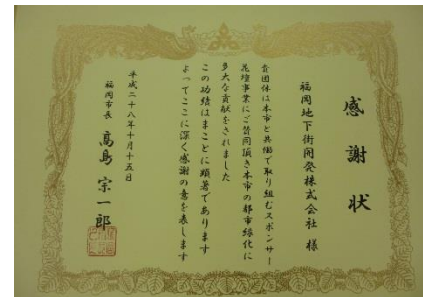 感謝状
福岡地下街開発株式会社 様
貴団体は本市と共働で取り組むスポンサー
花壇事業にご賛同頂き本市の都市緑化に
多大な貢献をされました
この功績はまことに顕著であります
よってここに深く感謝の意を表します
平成二十八年十月十五日
福岡市長 高島 宗一郎